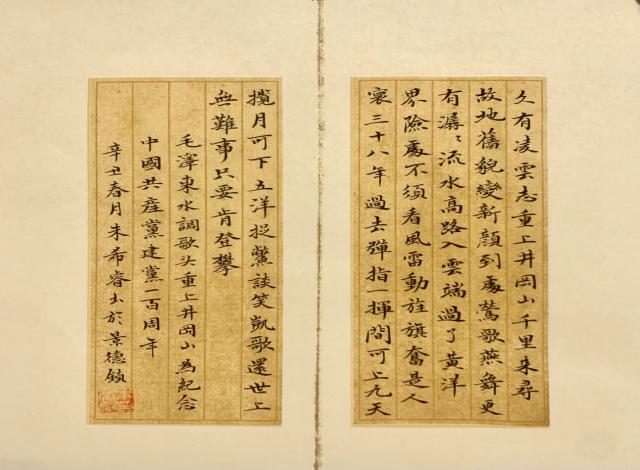 久有凌雲志重上井岡山千里来尋
故地舊貌變新顔到處鶯歌燕舞更
有潺〻流水高路入雲端過了黄洋
界險處不須看風雷動旌旗奮是人
寰三十八年過去彈指一揮間可上九天
攬月可下五洋捉鱉談笑凱歌還世上
無難事只要肯登攀
毛澤東水調歌头重上井岡山為紀念
中國共產黨建黨一百周年
辛丑春月朱希睿书於景德鎮